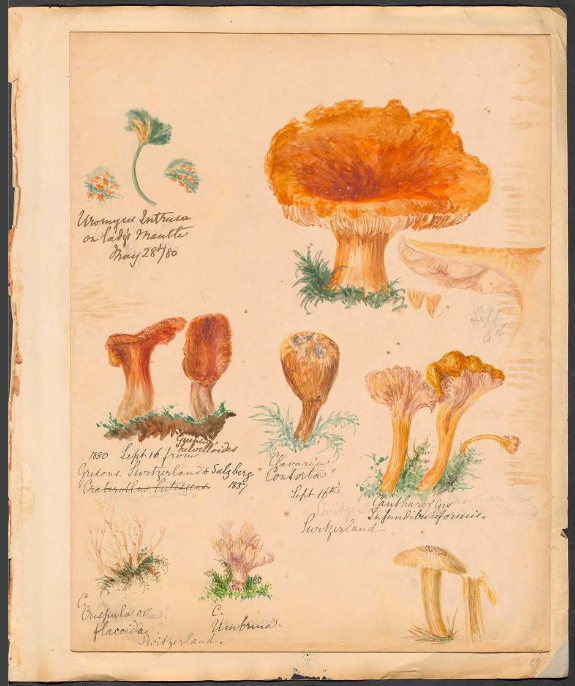 Uromyces Intrusa
on lady's Mantle
May 28th/80
Sept
6th
Guepinia
helvelloides
1880 Sept 16 from
Grisons. Switzerland & Salzberg
Craterellus lutescens 1887
Clavaria
Contorta?
Sept 16th
Switzerland
Cantharellus
Infundibuliformis.
C.
Crispula or
flaccida
Switzerland.
C.
Umbrina.